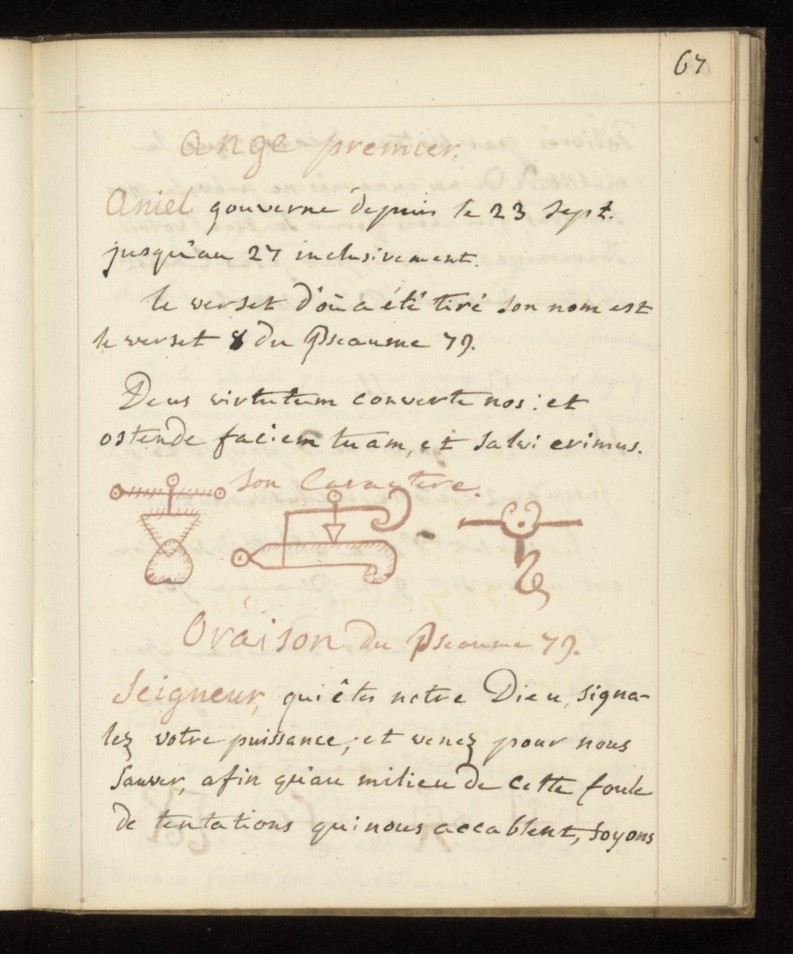 67
Ange premier.
Aniel gouverne depuis le 23 Sept.
jusqu'au 27 inclusivement.
le verset d'où a été tiré Son nom est
le verset 8 du Pseaume 79.
Deus virtutum converte nos: et
ostende faciem tuam, et Salvi erimus.
Son Caractere.
Oraison du Pseaume 79.
Seigneur, qui êtes notre Dieu, signa-
lez votre puissance, et venez pour nous
Sauver, afin qu'au milieu de cette foule
de tentations qui nous accablent, Soyons